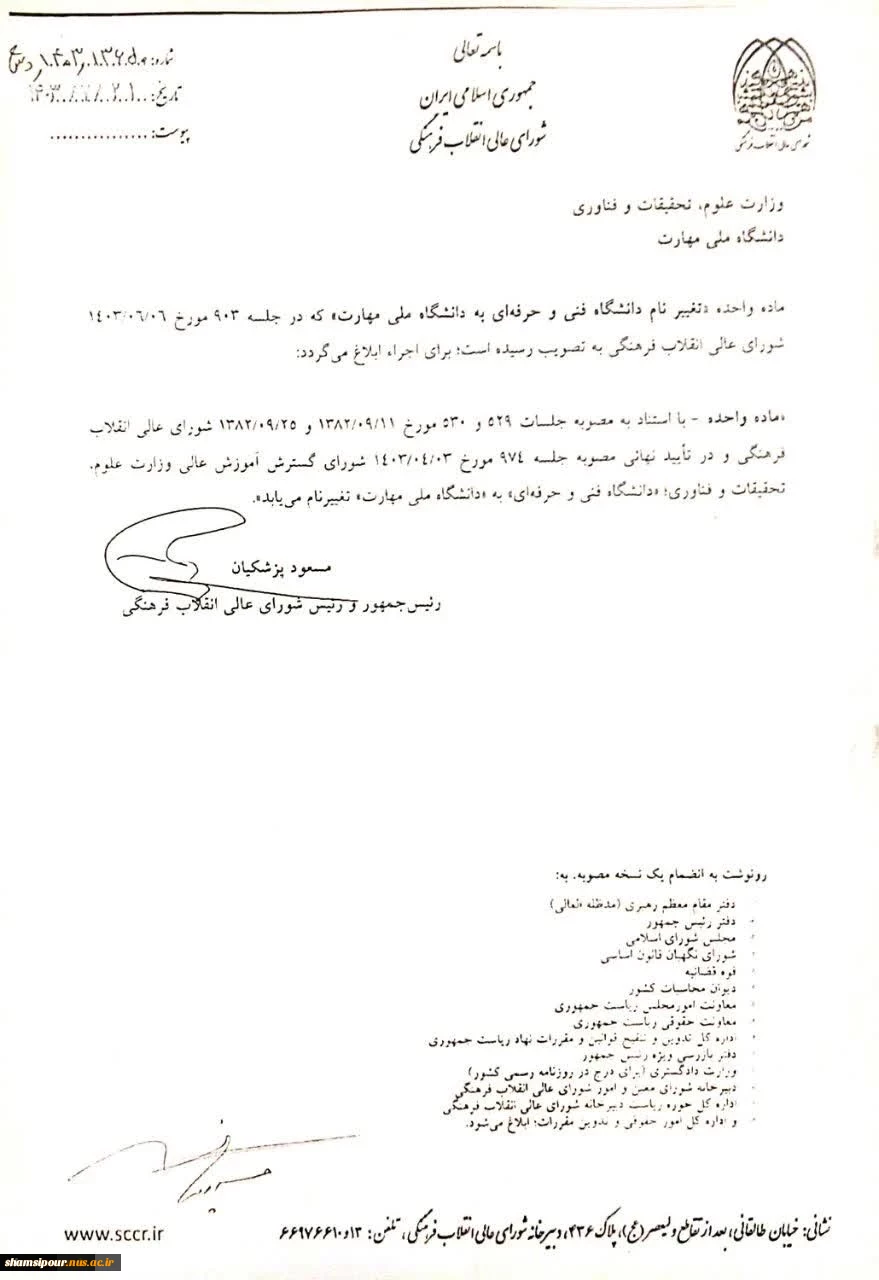 باسمه تعالی
جمهوری اسلامی ایران
شورای عالی انقلاب فرهنگی
شماره:
تاریخ:
پیوست: ................
شورای عالی انقلاب فرهنگی
وزارت علوم، تحقیقات و فناوری
دانشگاه ملی مهارت
ماده واحده «تغییر نام دانشگاه فنی و حرفه‌ای به دانشگاه ملی مهارت» که در جلسه ۹۰۳ مورخ ۱۴۰۳/۰۶/۰۶
شورای عالی انقلاب فرهنگی به تصویب رسیده است؛ برای اجراء ابلاغ می‌گردد:
«ماده واحده - با استناد به مصوبه جلسات ۵۲۹ و ۵۳۰ مورخ ۱۳۸۲/۰۹/۱۱ و ۱۳۸۲/۰۹/۲۵ شورای عالی انقلاب
فرهنگی و در تأیید نهائی مصوبه جلسه ۹۷۴ مورخ ۱۴۰۳/۰۴/۰۳ شورای گسترش آموزش عالی وزارت علوم،
تحقیقات و فناوری؛ «دانشگاه فنی و حرفه‌ای» به «دانشگاه ملی مهارت» تغییرنام می‌یابد».
مسعود پزشکیان
رئیس‌جمهور و رئیس شورای عالی انقلاب فرهنگی
رونوشت به انضمام یک نسخه مصوبه، به:
دفتر مقام معظم رهبری (مدظله العالی)
دفتر رئیس جمهور
مجلس شورای اسلامی
شورای نگهبان قانون اساسی
قوه قضائیه
دیوان محاسبات کشور
معاونت امورمجلس ریاست جمهوری
معاونت حقوقی ریاست جمهوری
اداره کل تدوین و تنقیح قوانین و مقررات نهاد ریاست جمهوری
دفتر بازرسی ویژه رئیس جمهور
وزارت دادگستری (برای درج در روزنامه رسمی کشور)
دبیرخانه شورای معین و امور شورای عالی انقلاب فرهنگی
اداره کل حوزه ریاست دبیرخانه شورای عالی انقلاب فرهنگی
و اداره کل امور حقوقی و تدوین مقررات؛ ابلاغ می‌شود.
نشانی: خیابان طالقانی، بعد از تقاطع ولیعصر(عج)، پلاک ۴۳۶، دبیرخانه شورای عالی انقلاب فرهنگی، تلفن: ۱۳و۶۶۹۷۶۶۱۰
www.sccr.ir
shamsipour.nus.ac.ir